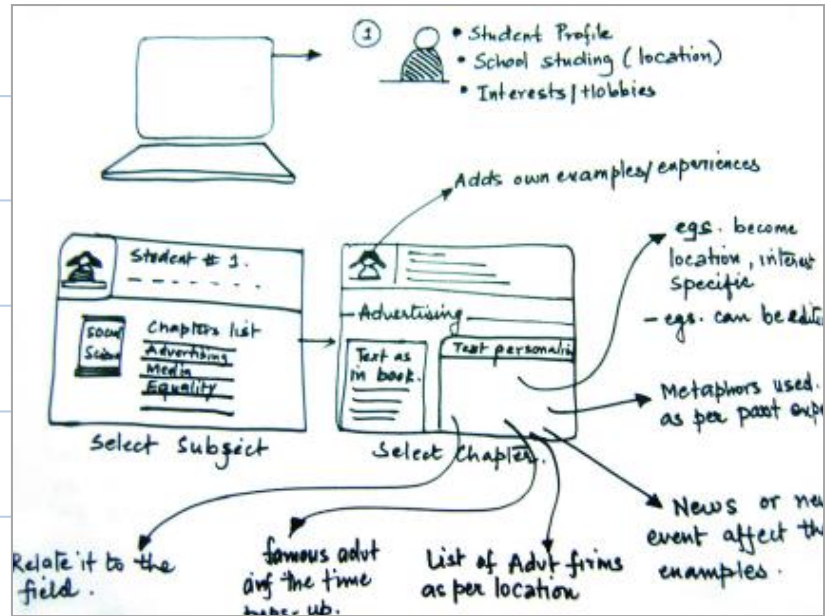 1
• Student Profile
• School studing (location)
• Interests/Hobbies
Adds own examples/experiences
Student # 1.
Social
Science
Chapters list
Advertising
Media
Equality
Select Subject
Advertising
Text as
in book.
Text personalis
Select Chapter.
egs. become
location, interest
specific
- egs. can be edite
Metaphors used.
as per past exp
News or
event affect th
examples.
Relate it to the
field.
famous advt
the time
up.
List of Advt firms
as per location